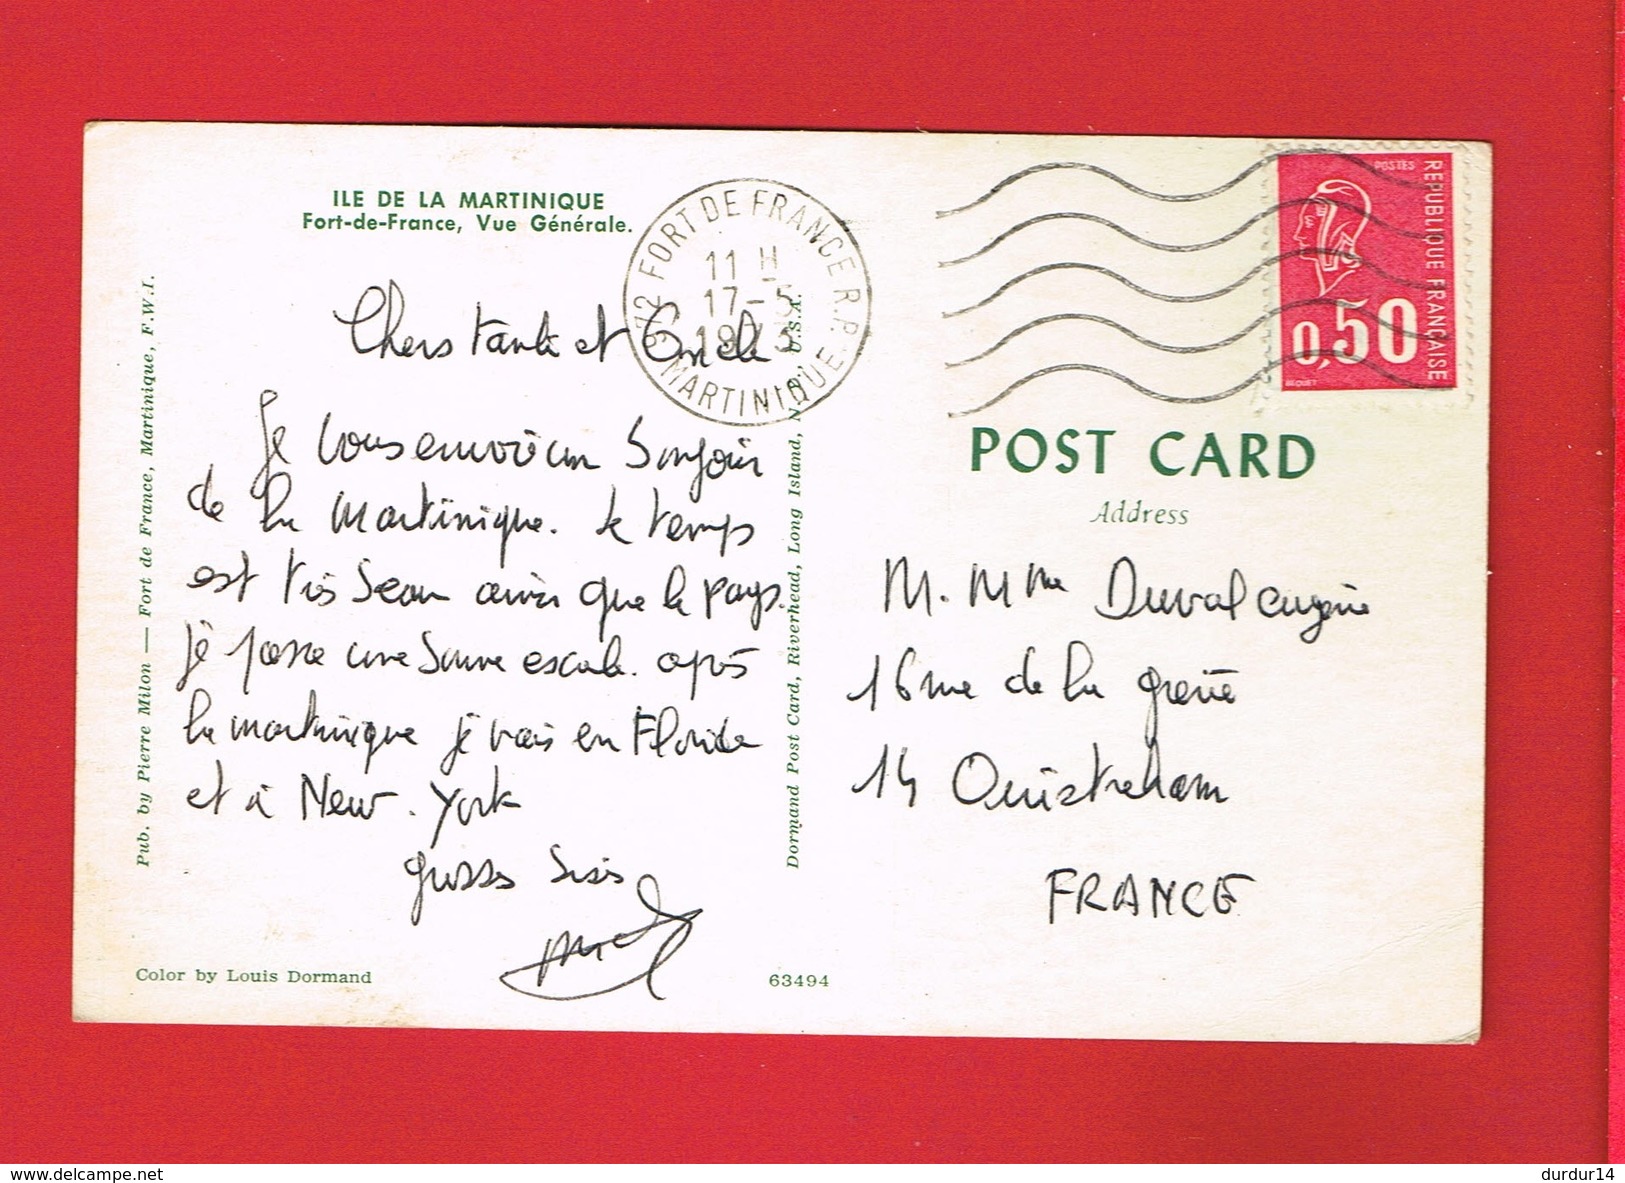 ILE DE LA MARTINIQUE
Fort-de-France, Vue Générale.
Chers tante et Oncle
Je vous envoie un Bonjour
de la Martinique. Le temps
est très beau ainsi que le pays.
je passe une bonne escale. après
la martinique je vais en Floride
et à New-York
grosses bises
Color by Louis Dormand
63494
Pub. by Pierre Milon — Fort de France, Martinique, F.W.I.
Dormand Post Card, Riverhead, Long Island, N.Y., U.S.A.
972 FORT DE FRANCE R.P.
11 H
17-5
MARTINIQUE
POSTES
REPUBLIQUE FRANÇAISE
0,50
BEQUET
POST CARD
Address
M. Mme Duval eugène
16 rue de la grève
14 Ouistreham
FRANCE
www.delcampe.net
durdur14